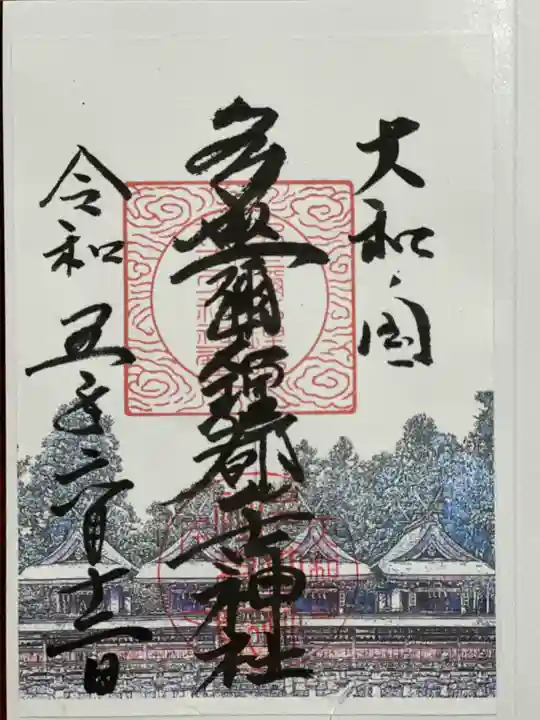 大和国
多坐彌志理都比古神社
令和五年六月十一日